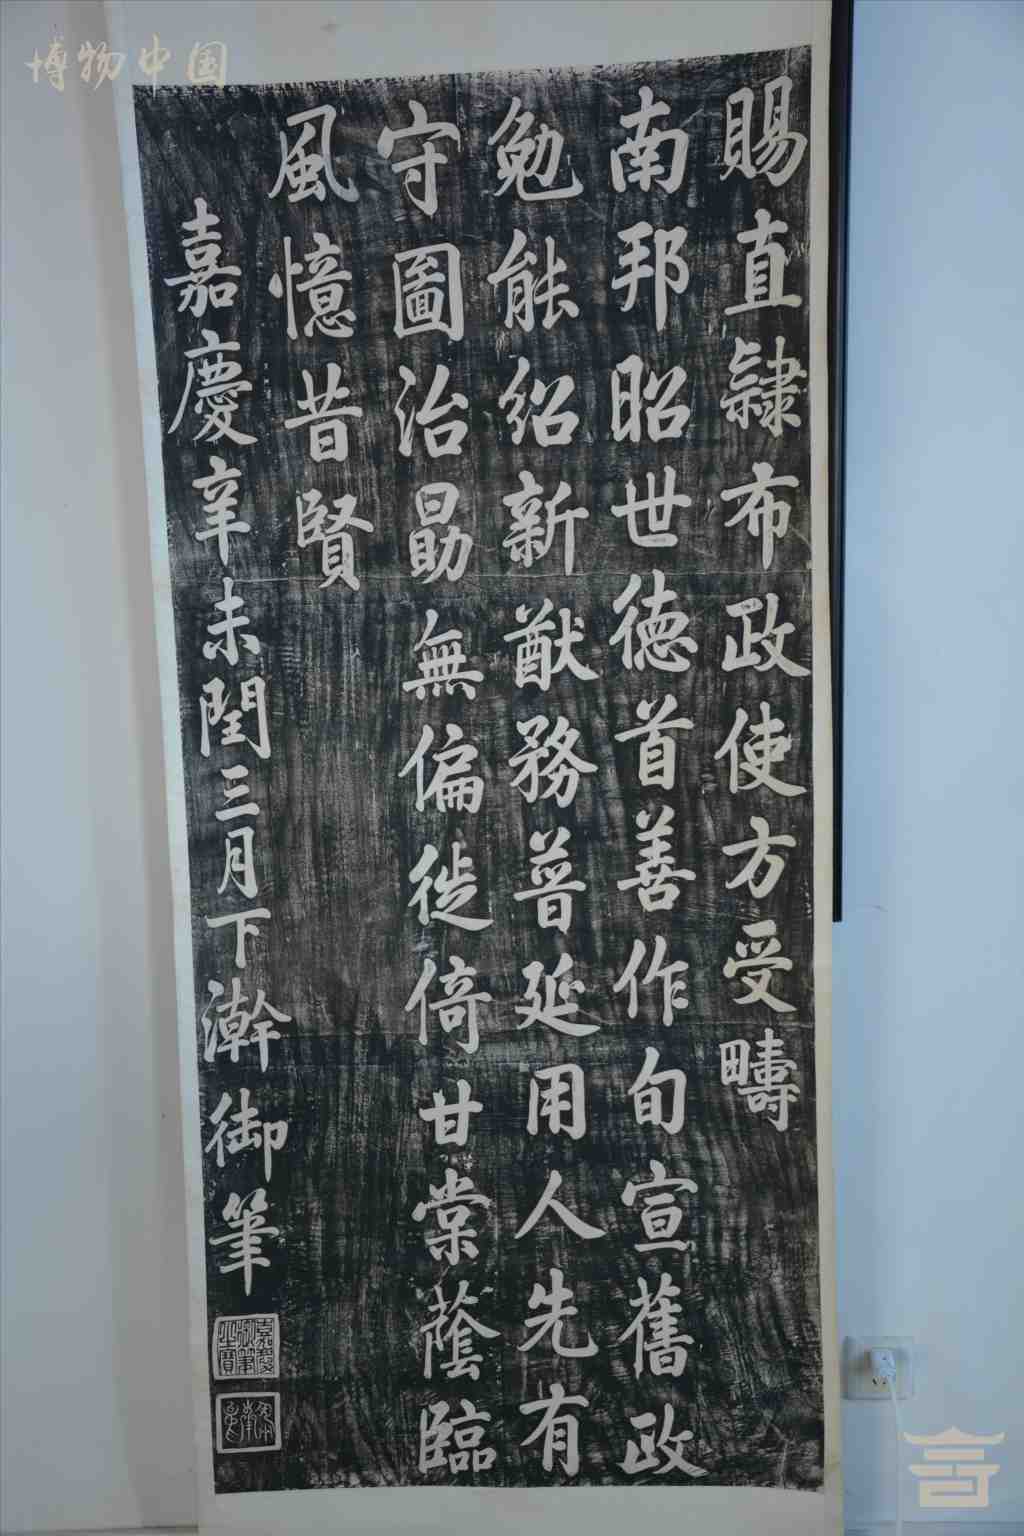 博物中国
賜直隸布政使方受疇
南邦昭世德首善作旬宣舊政
勉能紹新猷務普延用人先有
守圖治勗無偏徙倚甘棠蔭臨
風憶昔賢
嘉慶辛未閏三月下澣御筆
嘉慶御筆之寶